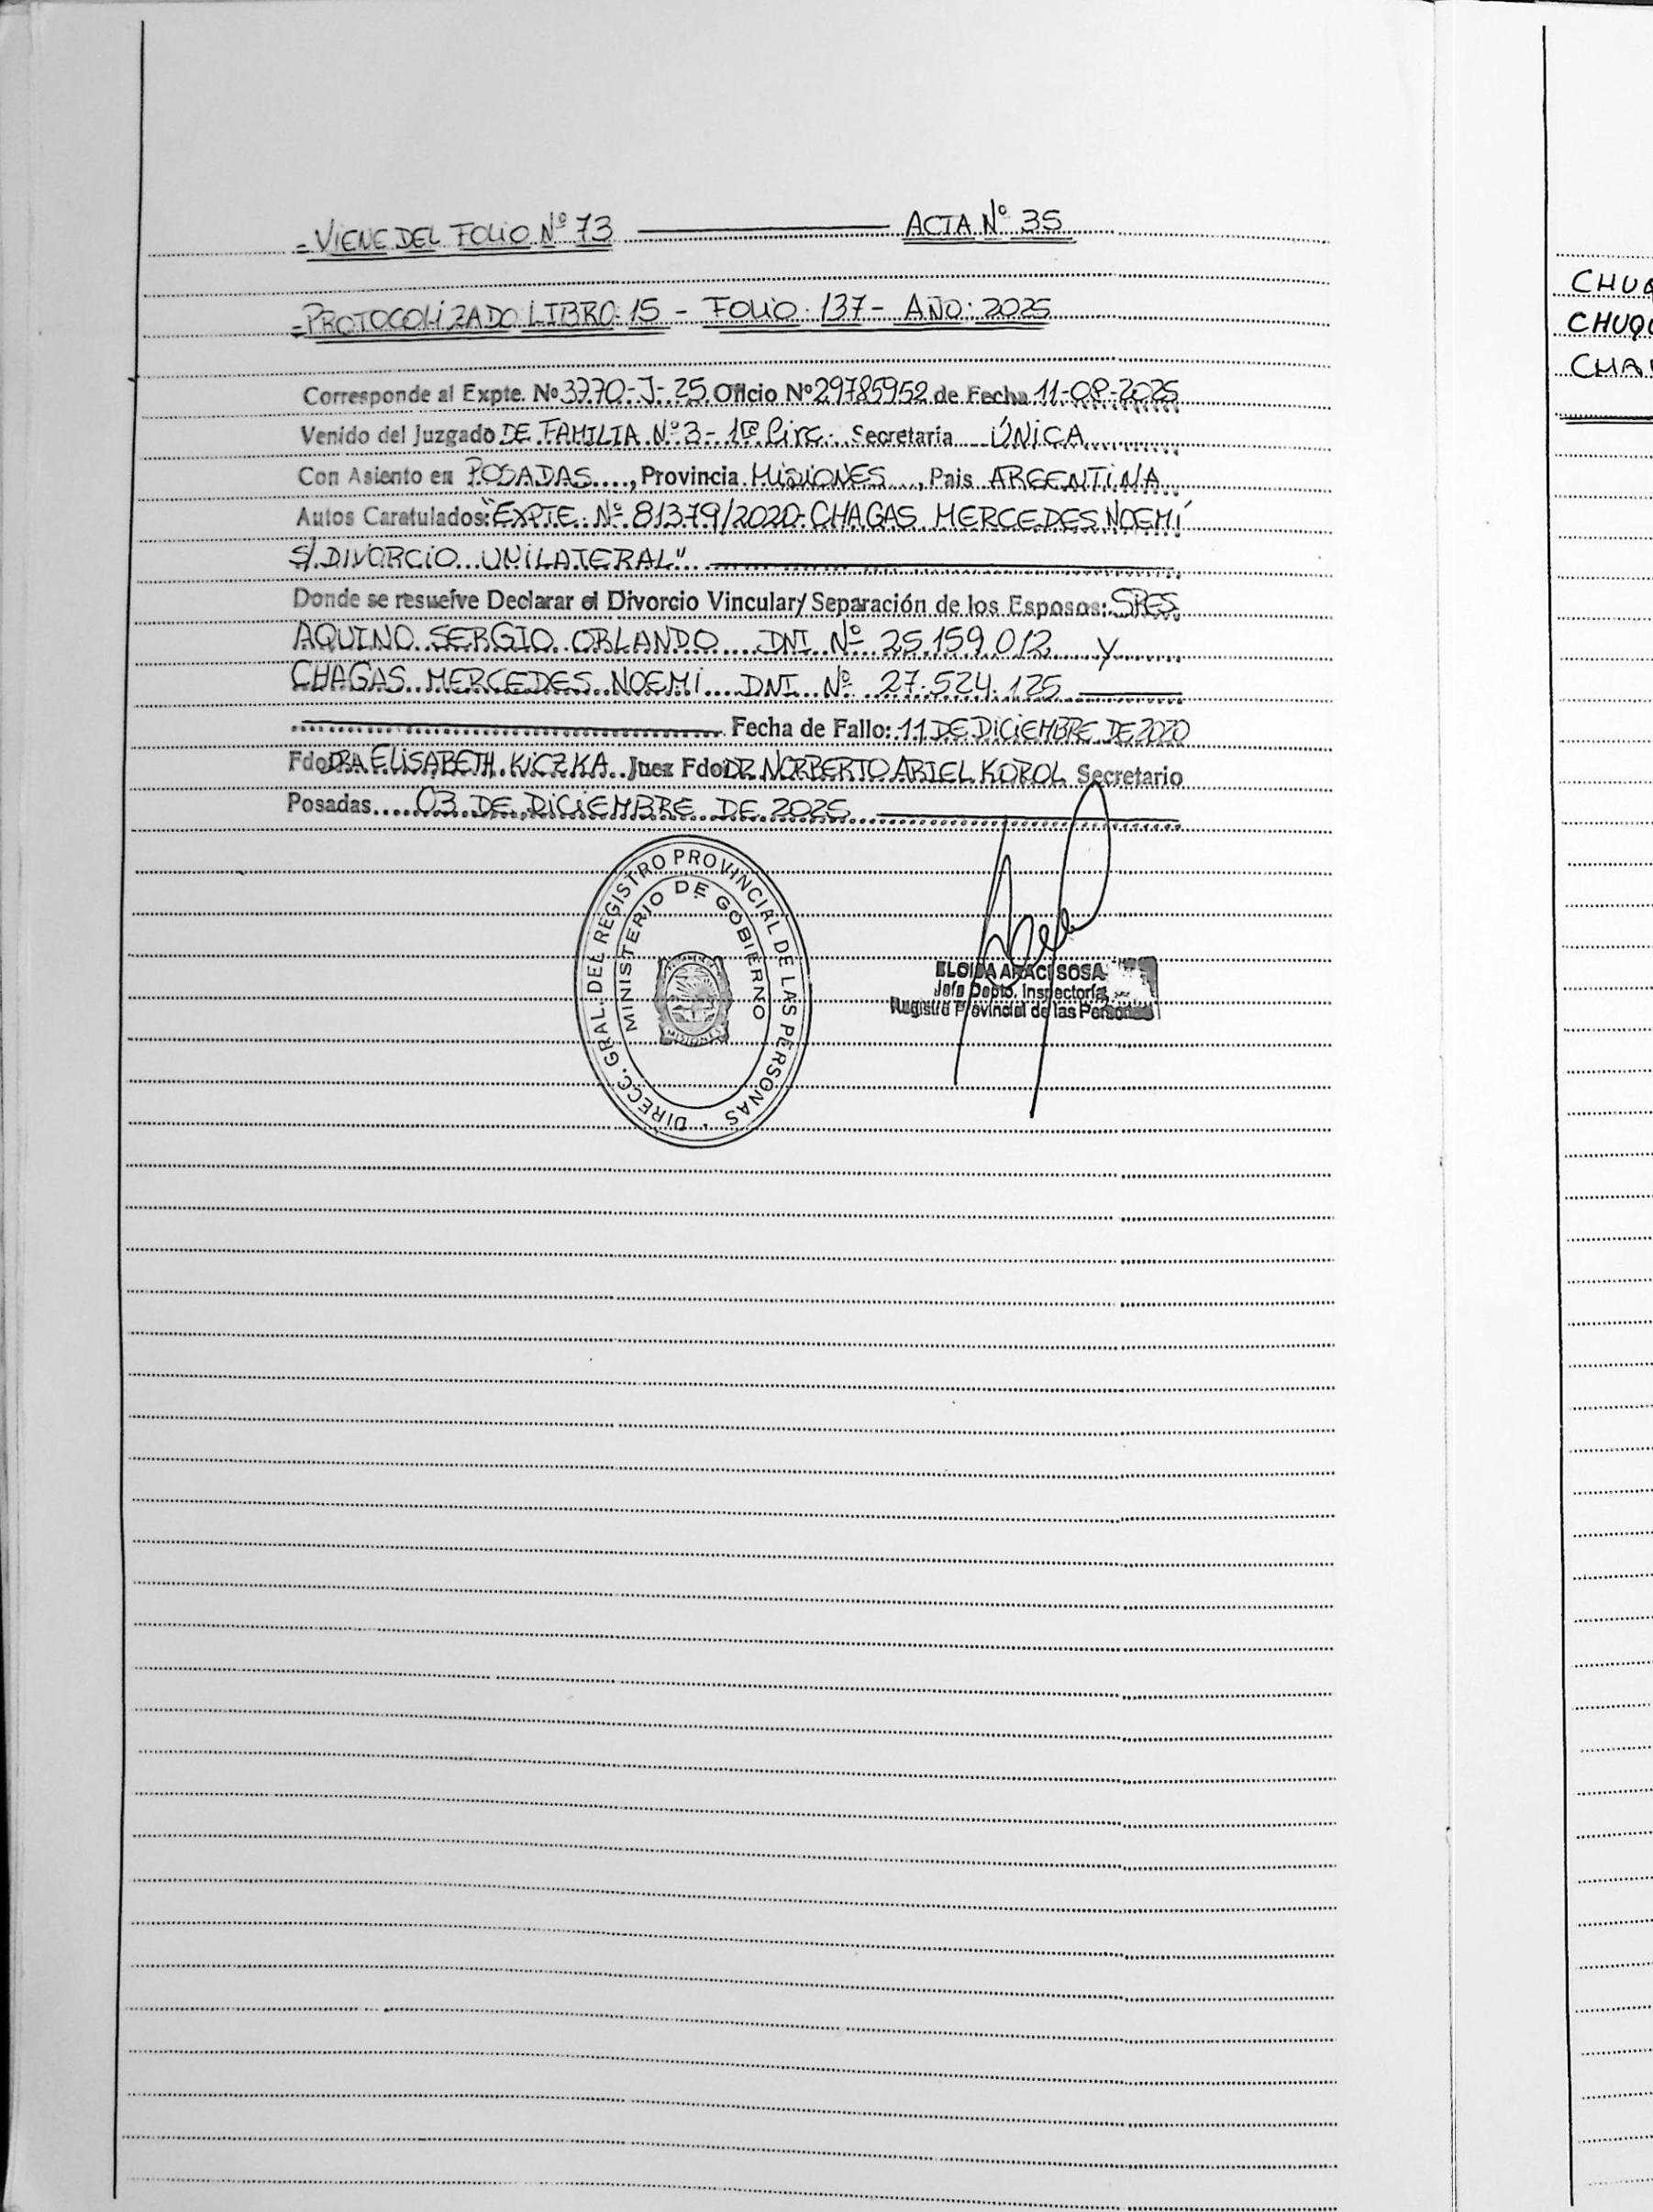 - VIENE DEL FOLIO Nº 73 ACTA Nº 35
- PROTOCOLIZADO LIBRO: 15 - FOLIO: 137 - AÑO: 2025
Corresponde al Expte. Nº 3770-J-25 Oficio Nº 29785952 de Fecha 11-08-2025
Venido del Juzgado DE FAMILIA Nº 3 - 1ra Circ. Secretaría ÚNICA
Con Asiento en POSADAS...., Provincia MISIONES ..., Pais ARGENTINA
Autos Caratulados: "EXPTE. Nº 81379/2020 CHAGAS MERCEDES NOEMÍ
S/ DIVORCIO UNILATERAL"
Donde se resuelve Declarar el Divorcio Vincular/ Separación de los Esposos: SRES
AQUINO SERGIO ORLANDO DNI Nº 25.159.012 Y
CHAGAS MERCEDES NOEMI DNI Nº 27.524.125
Fecha de Fallo: 11 DE DICIEMBRE DE 2020
Fdo DRA ELISABETH KICZKA Juez Fdo DR NORBERTO ARIEL KOROL Secretario
Posadas.... 03 DE DICIEMBRE DE 2025
DIRECC. GRAL. DEL REGISTRO PROVINCIAL DE LAS PERSONAS
MINISTERIO DE GOBIERNO
MISIONES
ELOISA ARACI SOSA
Jefa Depto. Inspectoría
Registro Provincial de las Personas
CHUQ
CHUQU